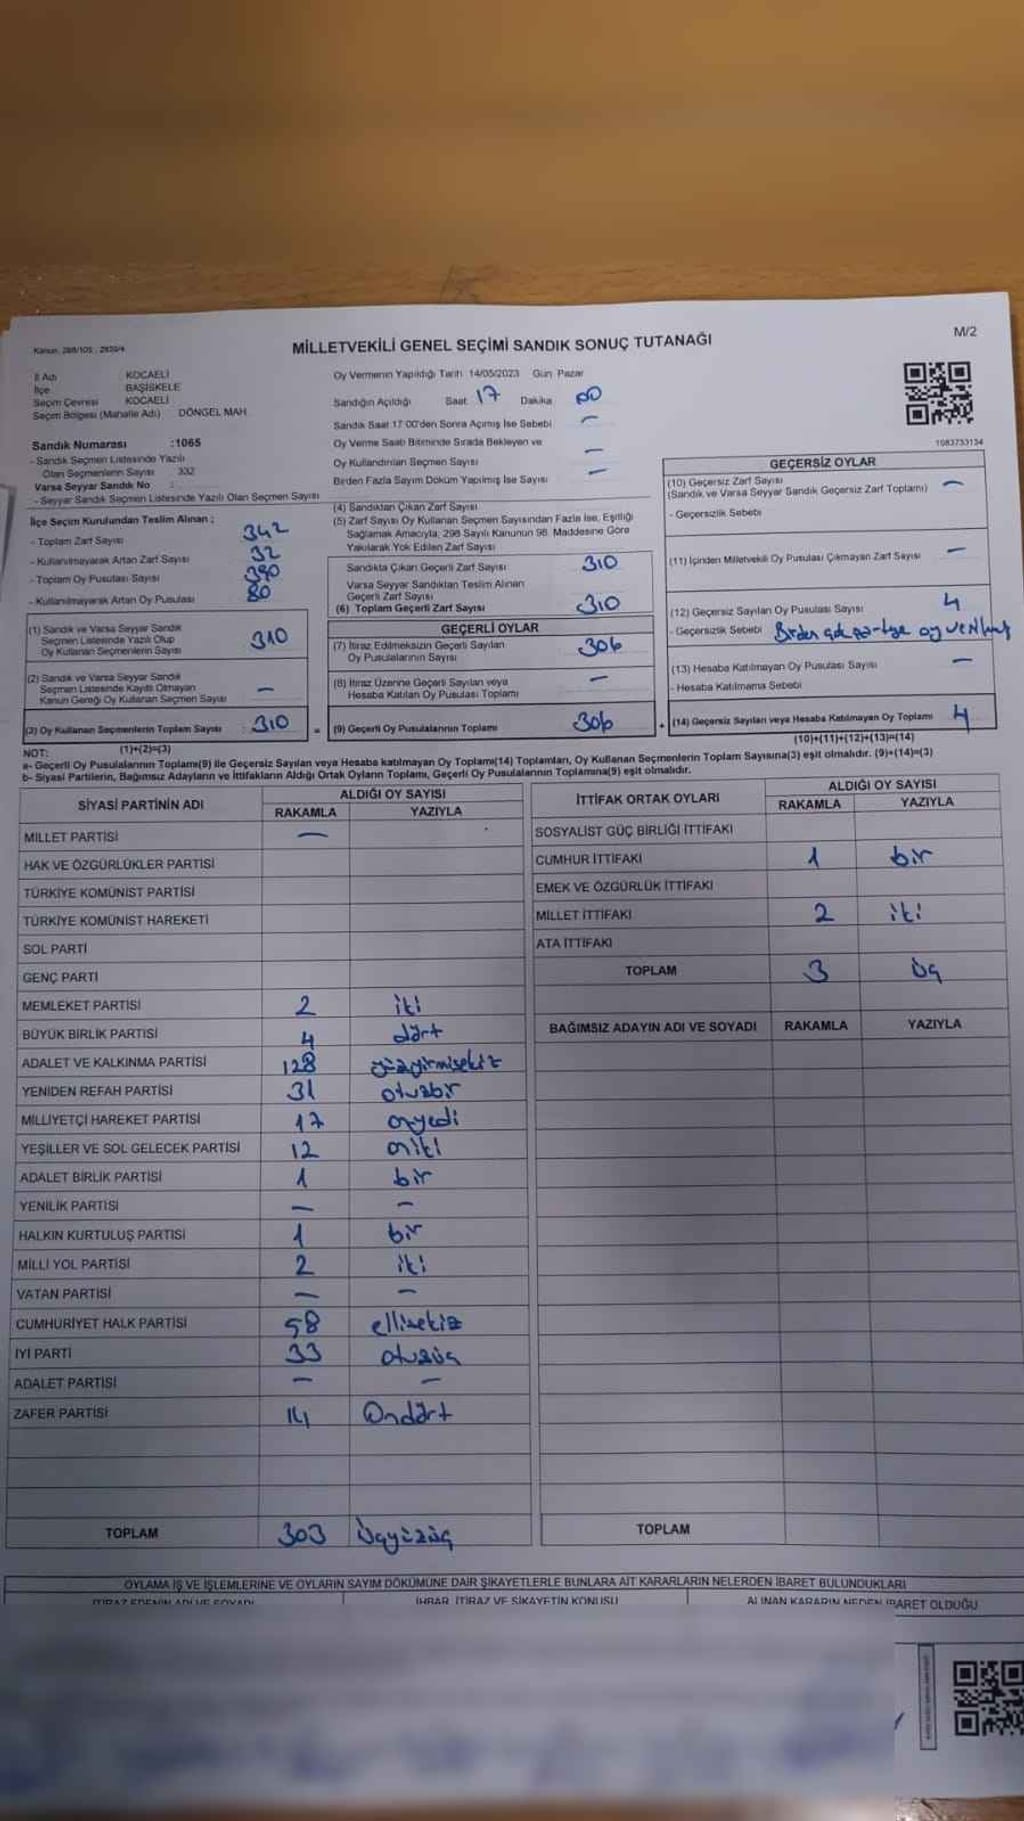 Kanun, 298/105 , 2820/4
MİLLETVEKİLİ GENEL SEÇİMİ SANDIK SONUÇ TUTANAĞI
M/2
İl Adı : KOCAELİ
İlçe : BAŞİSKELE
Seçim Çevresi : KOCAELİ
Seçim Bölgesi (Mahalle Adı) : DÖNGEL MAH.
Sandık Numarası :1065
- Sandık Seçmen Listesinde Yazılı
Olan Seçmenlerin Sayısı : 332
Varsa Seyyar Sandık No :
- Seyyar Sandık Seçmen Listesinde Yazılı Olan Seçmen Sayısı
Oy Vermenin Yapıldığı Tarih: 14/05/2023 Gün: Pazar
Sandığın Açıldığı Saat: 17 Dakika: 00
Sandık Saat 17:00'den Sonra Açımış İse Sebebi —
Oy Verme Saati Bitiminde Sırada Bekleyen ve
Oy Kullandırılan Seçmen Sayısı —
Birden Fazla Sayım Döküm Yapılmış İse Sayısı —
1083733134
İlçe Seçim Kurulundan Teslim Alınan ;
- Toplam Zarf Sayısı 342
- Kullanılmayarak Artan Zarf Sayısı 32
- Toplam Oy Pusulası Sayısı 390
- Kullanılmayarak Artan Oy Pusulası 80
(1) Sandık ve Varsa Seyyar Sandık
Seçmen Listesinde Yazılı Olup
Oy Kullanan Seçmenlerin Sayısı 310
(2) Sandık ve Varsa Seyyar Sandık
Seçmen Listesinde Kayıtlı Olmayan
Kanun Gereği Oy Kullanan Seçmen Sayısı —
(3) Oy Kullanan Seçmenlerin Toplam Sayısı : 310
(1)+(2)=(3)
(4) Sandıktan Çıkan Zarf Sayısı
(5) Zarf Sayısı Oy Kullanan Seçmen Sayısından Fazla İse, Eşitliği
Sağlamak Amacıyla, 298 Sayılı Kanunun 98. Maddesine Göre
Yakılarak Yok Edilen Zarf Sayısı
Sandıkta Çıkan Geçerli Zarf Sayısı 310
Varsa Seyyar Sandıktan Teslim Alınan
Geçerli Zarf Sayısı
(6) Toplam Geçerli Zarf Sayısı 310
GEÇERLİ OYLAR
(7) İtiraz Edilmeksizin Geçerli Sayılan
Oy Pusulalarının Sayısı 306
(8) İtiraz Üzerine Geçerli Sayılan veya
Hesaba Katılan Oy Pusulası Toplamı —
= (9) Geçerli Oy Pusulalarının Toplamı 306
GEÇERSİZ OYLAR
(10) Geçersiz Zarf Sayısı
(Sandık ve Varsa Seyyar Sandık Geçersiz Zarf Toplamı) —
- Geçersizlik Sebebi
(11) İçinden Milletvekili Oy Pusulası Çıkmayan Zarf Sayısı —
(12) Geçersiz Sayılan Oy Pusulası Sayısı 4
- Geçersizlik Sebebi Birden çok partiye oy verilmiş
(13) Hesaba Katılmayan Oy Pusulası Sayısı —
- Hesaba Katılmama Sebebi
+ (14) Geçersiz Sayılan veya Hesaba Katılmayan Oy Toplamı 4
(10)+(11)+(12)+(13)=(14)
NOT:
a- Geçerli Oy Pusulalarının Toplamı(9) ile Geçersiz Sayılan veya Hesaba katılmayan Oy Toplamı(14) Toplamları, Oy Kullanan Seçmenlerin Toplam Sayısına(3) eşit olmalıdır. (9)+(14)=(3)
b- Siyasi Partilerin, Bağımsız Adayların ve İttifakların Aldığı Ortak Oyların Toplamı, Geçerli Oy Pusulalarının Toplamına(9) eşit olmalıdır.
SİYASİ PARTİNİN ADI ALDIĞI OY SAYISI
RAKAMLA YAZIYLA
MİLLET PARTİSİ —
HAK VE ÖZGÜRLÜKLER PARTİSİ
TÜRKİYE KOMÜNİST PARTİSİ
TÜRKİYE KOMÜNİST HAREKETİ
SOL PARTİ
GENÇ PARTİ
MEMLEKET PARTİSİ 2 iki
BÜYÜK BİRLİK PARTİSİ 4 dört
ADALET VE KALKINMA PARTİSİ 128 yüzyirmisekiz
YENİDEN REFAH PARTİSİ 31 otuzbir
MİLLİYETÇİ HAREKET PARTİSİ 17 onyedi
YEŞİLLER VE SOL GELECEK PARTİSİ 12 oniki
ADALET BİRLİK PARTİSİ 1 bir
YENİLİK PARTİSİ — —
HALKIN KURTULUŞ PARTİSİ 1 bir
MİLLİ YOL PARTİSİ 2 iki
VATAN PARTİSİ — —
CUMHURİYET HALK PARTİSİ 58 ellisekiz
İYİ PARTİ 33 otuzüç
ADALET PARTİSİ — —
ZAFER PARTİSİ 14 Ondört
TOPLAM 303 Üçyüzüç
İTTİFAK ORTAK OYLARI ALDIĞI OY SAYISI
RAKAMLA YAZIYLA
SOSYALİST GÜÇ BİRLİĞİ İTTİFAKI
CUMHUR İTTİFAKI 1 bir
EMEK VE ÖZGÜRLÜK İTTİFAKI
MİLLET İTTİFAKI 2 iki
ATA İTTİFAKI
TOPLAM 3 üç
BAĞIMSIZ ADAYIN ADI VE SOYADI RAKAMLA YAZIYLA
TOPLAM
OYLAMA İŞ VE İŞLEMLERİNE VE OYLARIN SAYIM DÖKÜMÜNE DAİR ŞİKAYETLERLE BUNLARA AİT KARARLARIN NELERDEN İBARET BULUNDUKLARI
İTİRAZ EDENİN ADI VE SOYADI İHBAR, İTİRAZ VE ŞİKAYETİN KONUSU ALINAN KARARIN NEDEN İBARET OLDUĞU